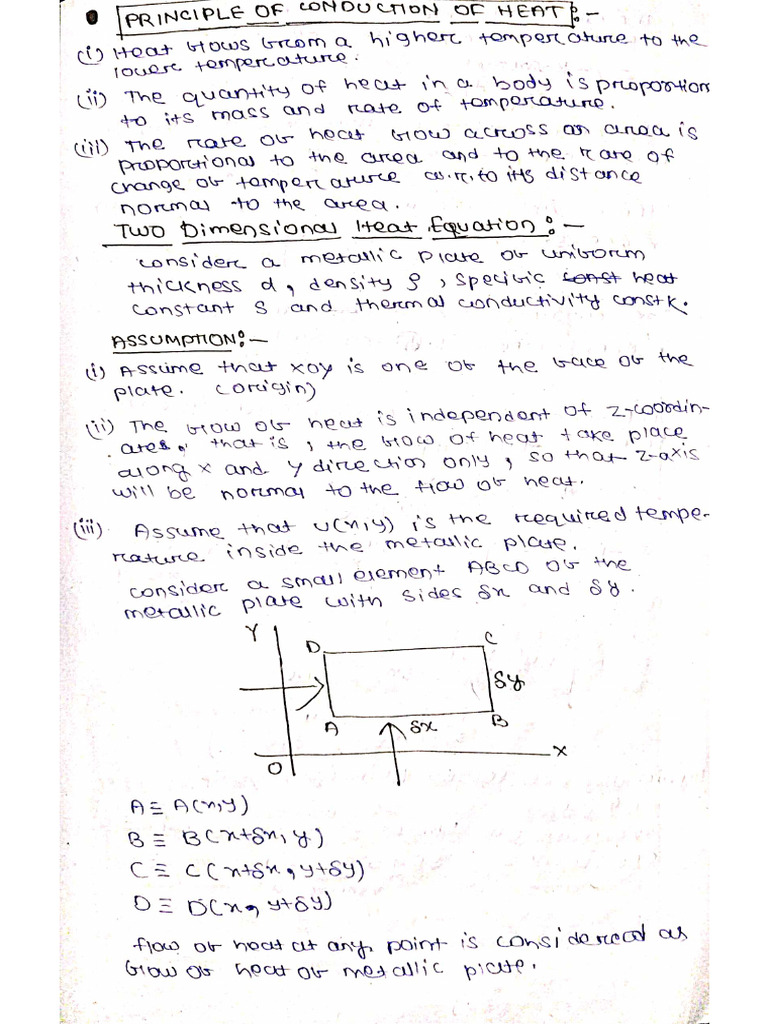 PRINCIPLE OF CONDUCTION OF HEAT :-
(i) Heat flows from a higher temperature to the
lower temperature.
(ii) The quantity of heat in a body is proportion
to its mass and rate of temperature.
(iii) The rate of heat flow across an area is
proportional to the area and to the rare of
change of temperature w.r.to its distance
normal to the area.
Two Dimensional Heat Equation :-
consider a metallic plate of uniform
thickness d, density ρ, specific const heat
constant S and thermal conductivity const K.
ASSUMPTION :-
(i) Assume that xoy is one of the face of the
plate. (origin)
(ii) The flow of heat is independent of z-coordin-
ates, that is, the flow of heat take place
along x and y direction only, so that z-axis
will be normal to the flow of heat.
(iii) Assume that u(x,y) is the required tempe-
rature inside the metallic plate.
consider a small element ABCD of the
metallic plate with sides δx and δy.
Y
D C
δy
A δx B
O X
A ≡ A(x,y)
B ≡ B(x+δx, y)
C ≡ C(x+δx, y+δy)
D ≡ D(x, y+δy)
flow of heat at any point is considered as
flow of heat of metallic plate.